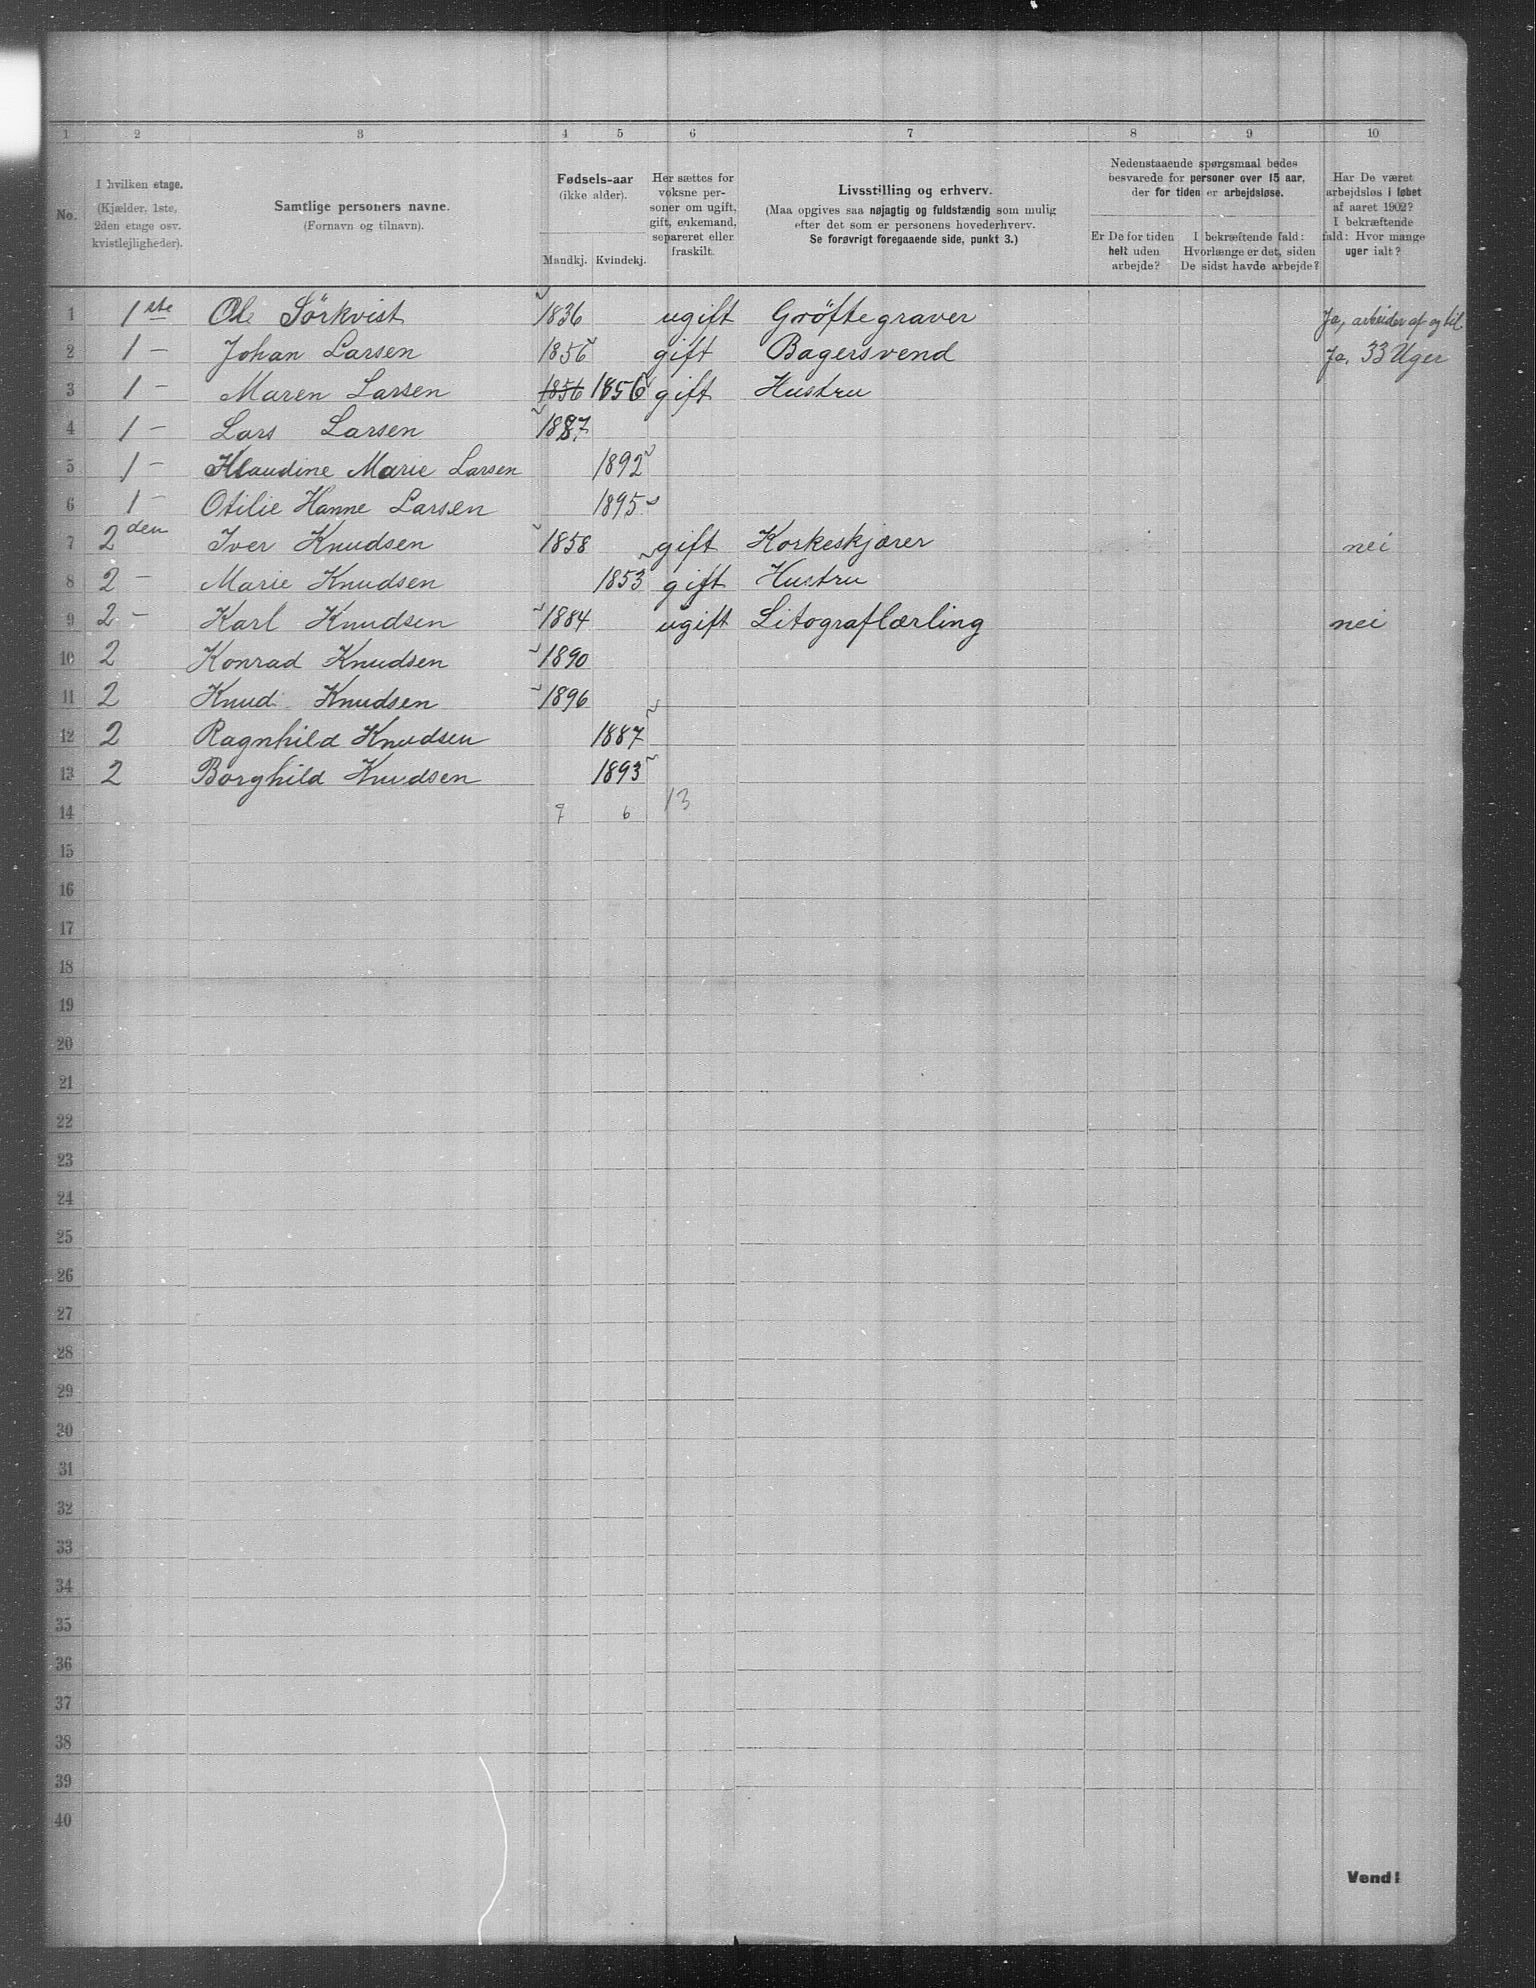 1 2 3 4 5 6 7 8 9 10
No.
I hvilken etage.
(Kjælder, 1ste,
2den etage osv.
kvistlejligheder).
Samtlige personers navne.
(Fornavn og tilnavn).
Fødsels-aar
(ikke alder).
Mandkj. Kvindekj.
Her sættes for
voksne per-
soner om ugift,
gift, enkemand,
separeret eller
fraskilt.
Livsstilling og erhverv.
(Maa opgives saa nøjagtig og fuldstændig som mulig
efter det som er personens hovederhverv.
Se forøvrigt foregaaende side, punkt 3.)
Nedenstaaende spørgsmaal bedes
besvarede for personer over 15 aar,
der for tiden er arbejdsløse.
Er De for tiden
helt uden
arbejde?
I bekræftende fald:
Hvorlænge er det, siden
De sidst havde arbejde?
Har De været
arbejdsløs i løbet
af aaret 1902?
I bekræftende
fald: Hvor mange
uger ialt?
1 1ste Ole Sörkvist 1836 ugift Grøftegraver Ja, arbeider af og til
2 1 – Johan Larsen 1856 gift Bagersvend Ja, 33 Uger
3 1 – Maren Larsen 1856 1856 gift Hustru
4 1 – Lars Larsen 1887
5 1 – Klaudine Marie Larsen 1892
6 1 – Otilie Hanne Larsen 1895
7 2den Iver Knudsen 1858 gift Korkeskjærer nei
8 2 – Marie Knudsen 1853 gift Hustru
9 2 – Karl Knudsen 1884 ugift Litograflærling nei
10 2 Konrad Knudsen 1890
11 2 Knud Knudsen 1896
12 2 Ragnhild Knudsen 1887
13 2 Borghild Knudsen 1893
14 7 6 13
15
16
17
18
19
20
21
22
23
24
25
26
27
28
29
30
31
32
33
34
35
36
37
38
39
40
Vend!